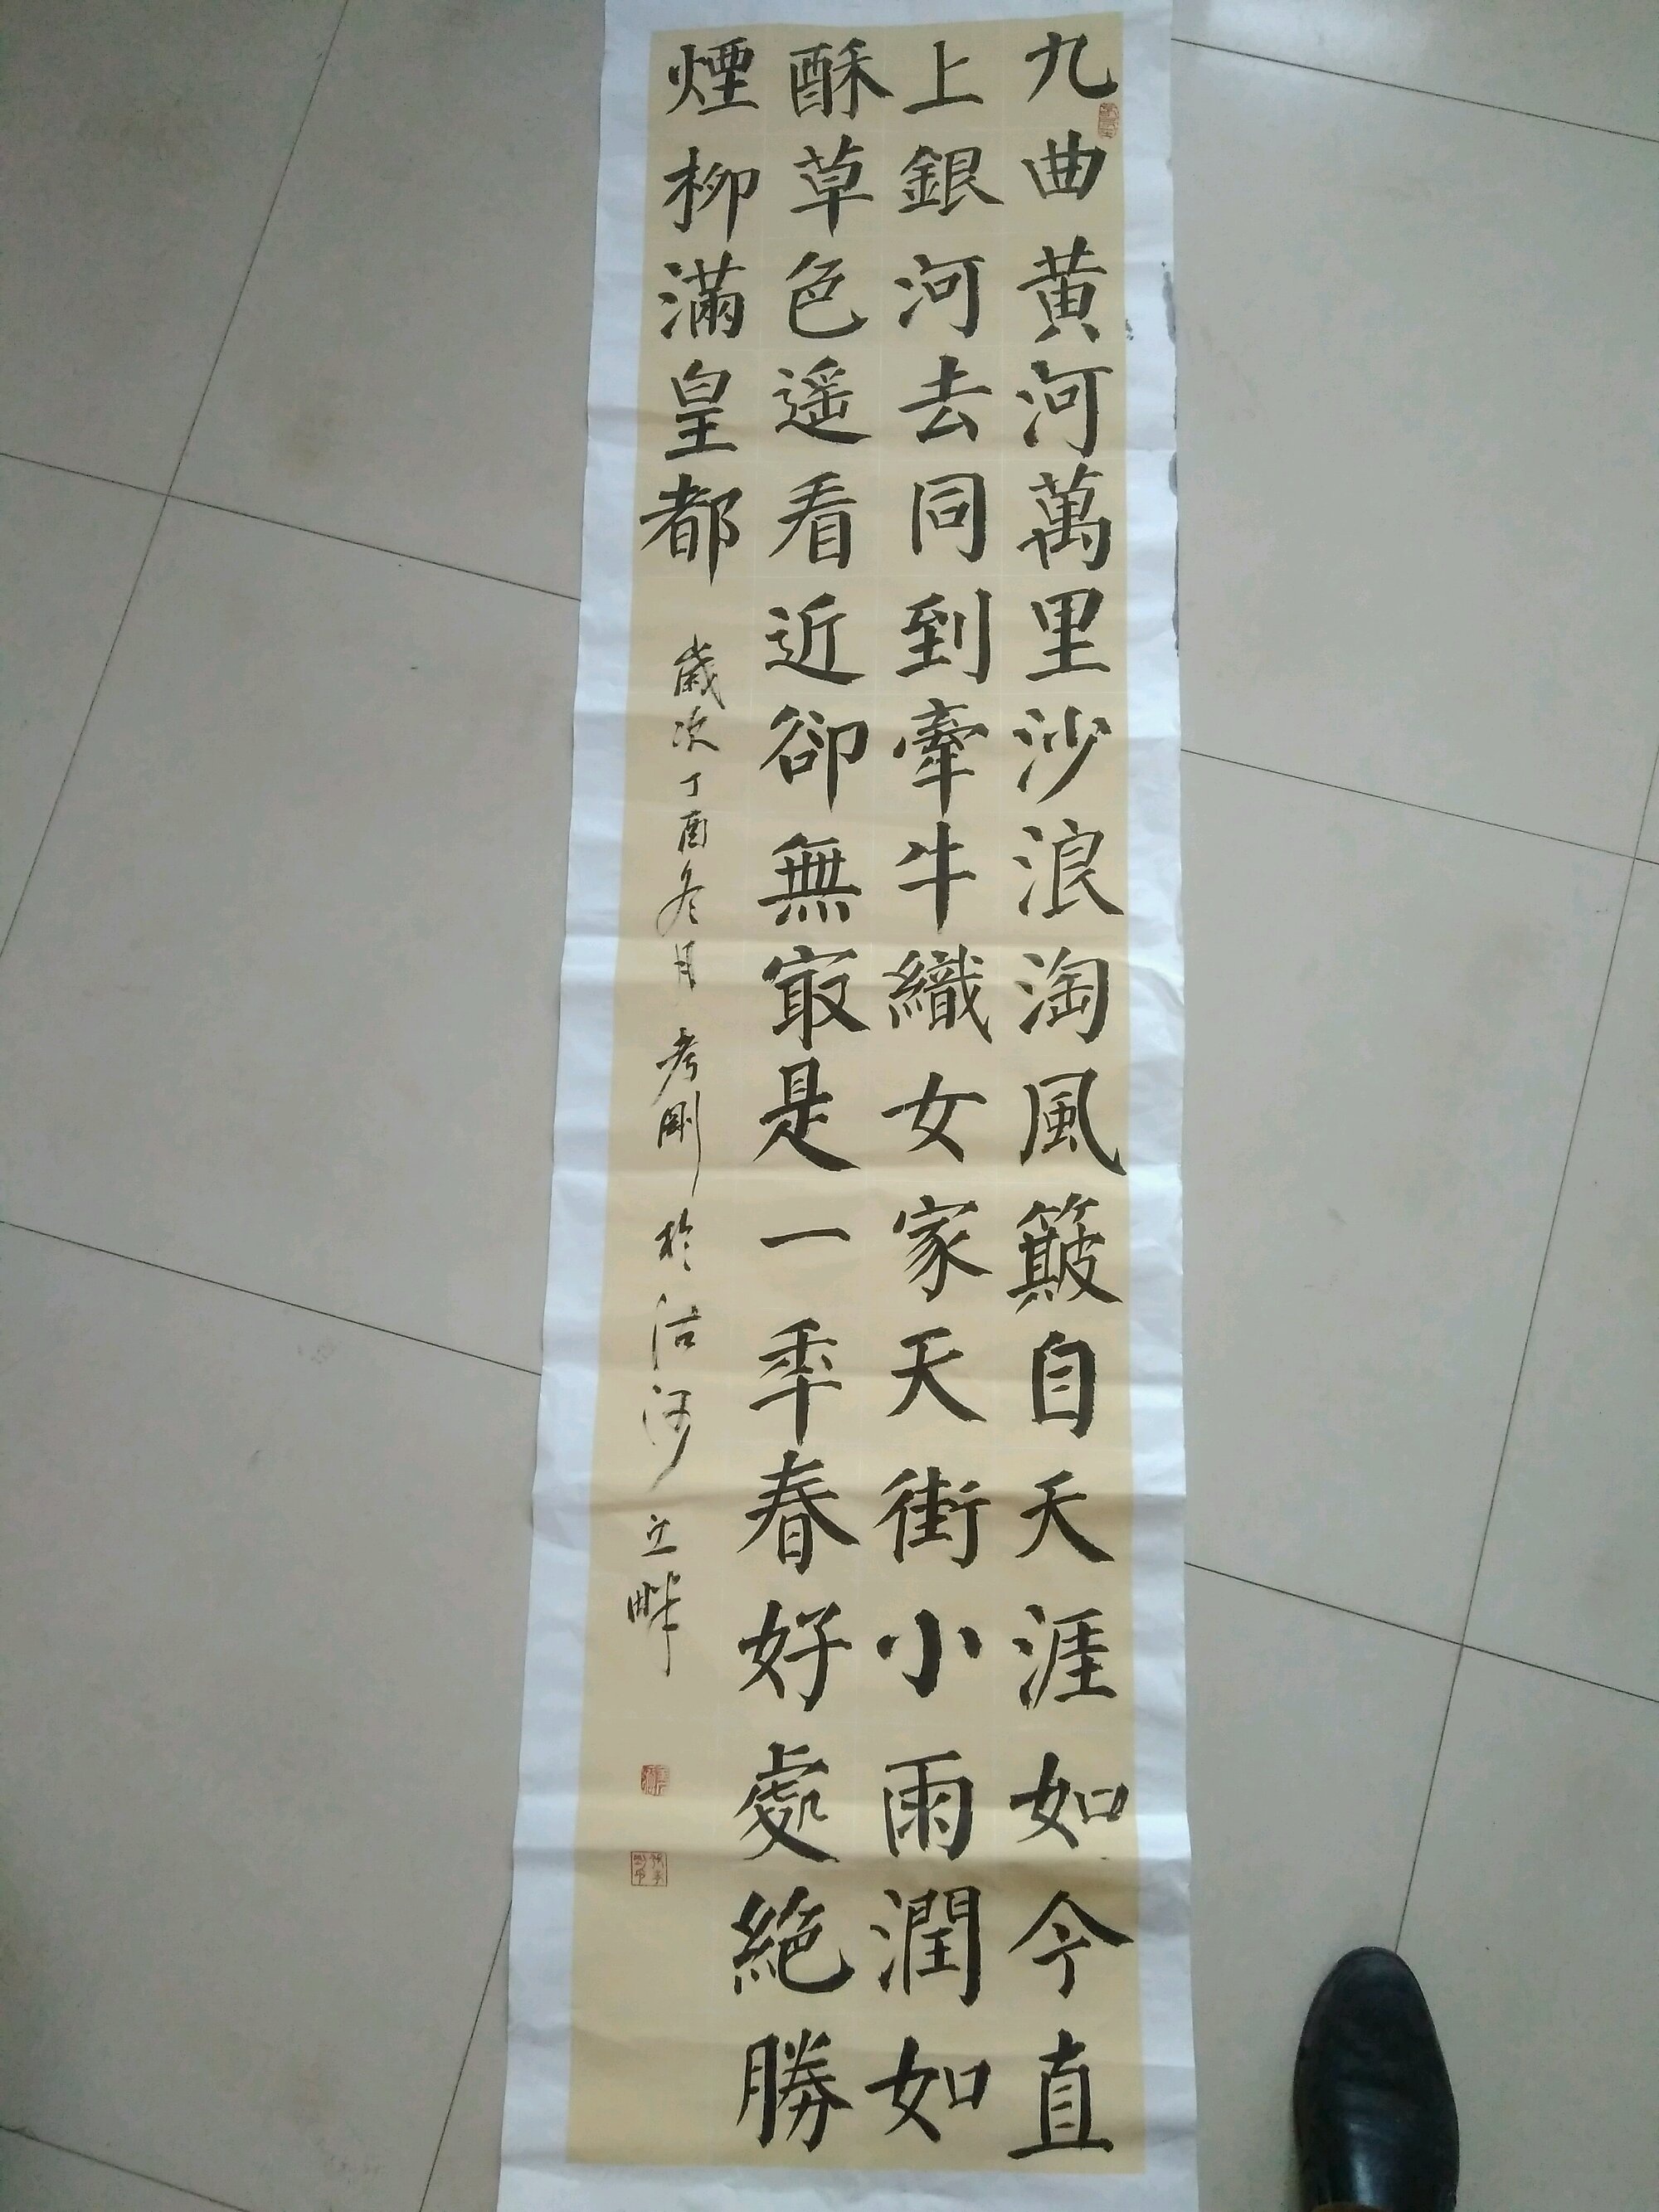 九曲黄河萬里沙浪淘風簸自天涯如今直
上銀河去同到牽牛織女家天街小雨潤如
酥草色遥看近卻無冣是一秊春好處絕勝
煙柳滿皇都
歲次丁酉冬月考剛於洁河之畔